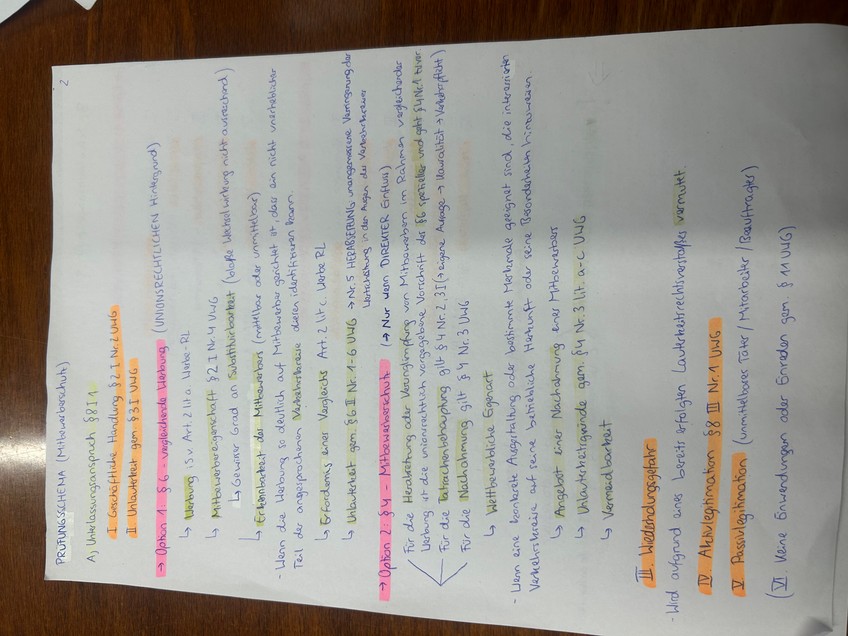 2
PRÜFUNGSSCHEMA (Mitbewerberschutz)
A) Unterlassungsanspruch § 8 I 1
I. Geschäftliche Handlung § 2 I Nr. 2 UWG
II. Unlauterkeit gem. § 3 I UWG
→ Option 1: § 6 - vergleichende Werbung (UNIONSRECHTLICHEN Hintergrund)
↳ Werbung iSv Art. 2 lit a Werbe-RL
↳ Mitbewerbereigenschaft § 2 I Nr. 4 UWG
↳ Gewisser Grad an Substituierbarkeit (bloße Wechselwirkung nicht ausreichend)
↳ Erkennbarkeit des Mitbewerbers (mittelbar oder unmittelbar)
- Wenn die Werbung so deutlich auf Mitbewerber gerichtet ist, dass ein nicht unerheblicher
Teil der angesprochenen Verkehrskreise diesen identifizieren kann.
↳ Erfordernis eines Vergleichs Art. 2 lit c. Werbe RL
↳ Unlauterkeit gem. § 6 II Nr. 1-6 UWG → Nr. 5 HERABSETZUNG unangemessene Verringerung der
Wertschätzung in den Augen der Verkehrskreise
→ Option 2: § 4 - Mitbewerberschutz (→ Nur wenn DIREKTER Einfluss)
Für die Herabsetzung oder Verunglimpfung von Mitbewerbern im Rahmen vergleichender
Werbung ist die unionsrechtlich vorgegebene Vorschrift des § 6 spezieller und geht § 4 Nr. 1 bevor
Für die Tatsachenbehauptung gilt § 4 Nr. 2, 3 I (→ eigene Aussage → Kausalität → Verkehrspflicht)
Für die Nachahmung gilt § 4 Nr. 3 UWG
↳ Wettbewerbliche Eigenart
- Wenn eine konkrete Ausgestaltung oder bestimmte Merkmale geeignet sind, die interessierten
Verkehrskreise auf seine betriebliche Herkunft oder seine Besonderheiten hinzuweisen
↳ Angebot einer Nachahmung eines Mitbewerbers
↳ Unlauterkeitsgründe gem. § 4 Nr. 3 lit. a-c UWG
↳ Vermeidbarkeit
III. Wiederholungsgefahr
- Wird aufgrund eines bereits erfolgten Lauterkeitsrechtsverstoßes vermutet.
IV. Aktivlegitimation § 8 III Nr. 1 UWG
V. Passivlegitimation (unmittelbarer Täter / Mitarbeiter / Beauftragter)
(VI. Keine Einwendungen oder Einreden gem. § 11 UWG)